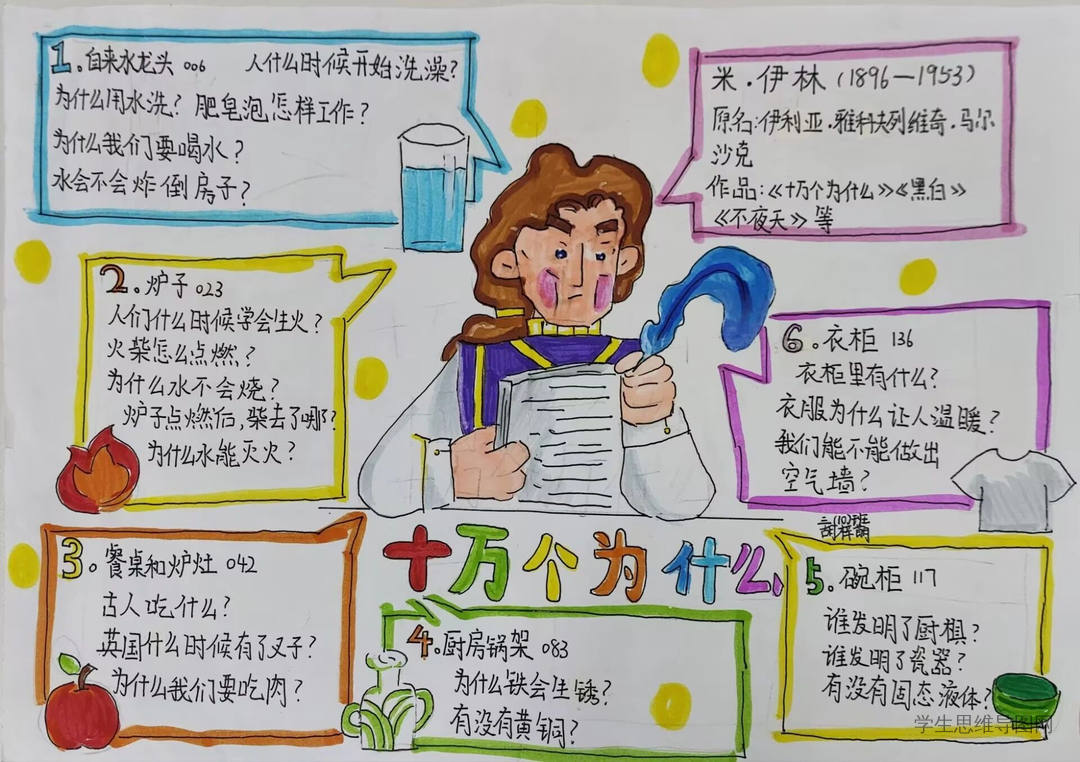 1.自来水龙头 006 人什么时候开始洗澡?
为什么用水洗? 肥皂泡怎样工作?
为什么我们要喝水?
水会不会炸倒房子?
米.伊林(1896—1953)
原名:伊利亚.雅科夫列维奇.马尔
沙克
作品:《十万个为什么》《黑白》
《不夜天》等
2.炉子 023
人们什么时候学会生火?
火柴怎么点燃?
为什么水不会烧?
炉子点燃后,柴去了哪?
为什么水能灭火?
6.衣柜 136
衣柜里有什么?
衣服为什么让人温暖?
我们能不能做出
空气墙?
十万个为什么
3.餐桌和炉灶 042
古人吃什么?
英国什么时候有了叉子?
为什么我们要吃肉?
4.厨房锅架 083
为什么铁会生锈?
有没有黄铜?
5.碗柜 117
谁发明了厨柜?
谁发明了瓷器?
有没有固态液体?
学生思维导图网